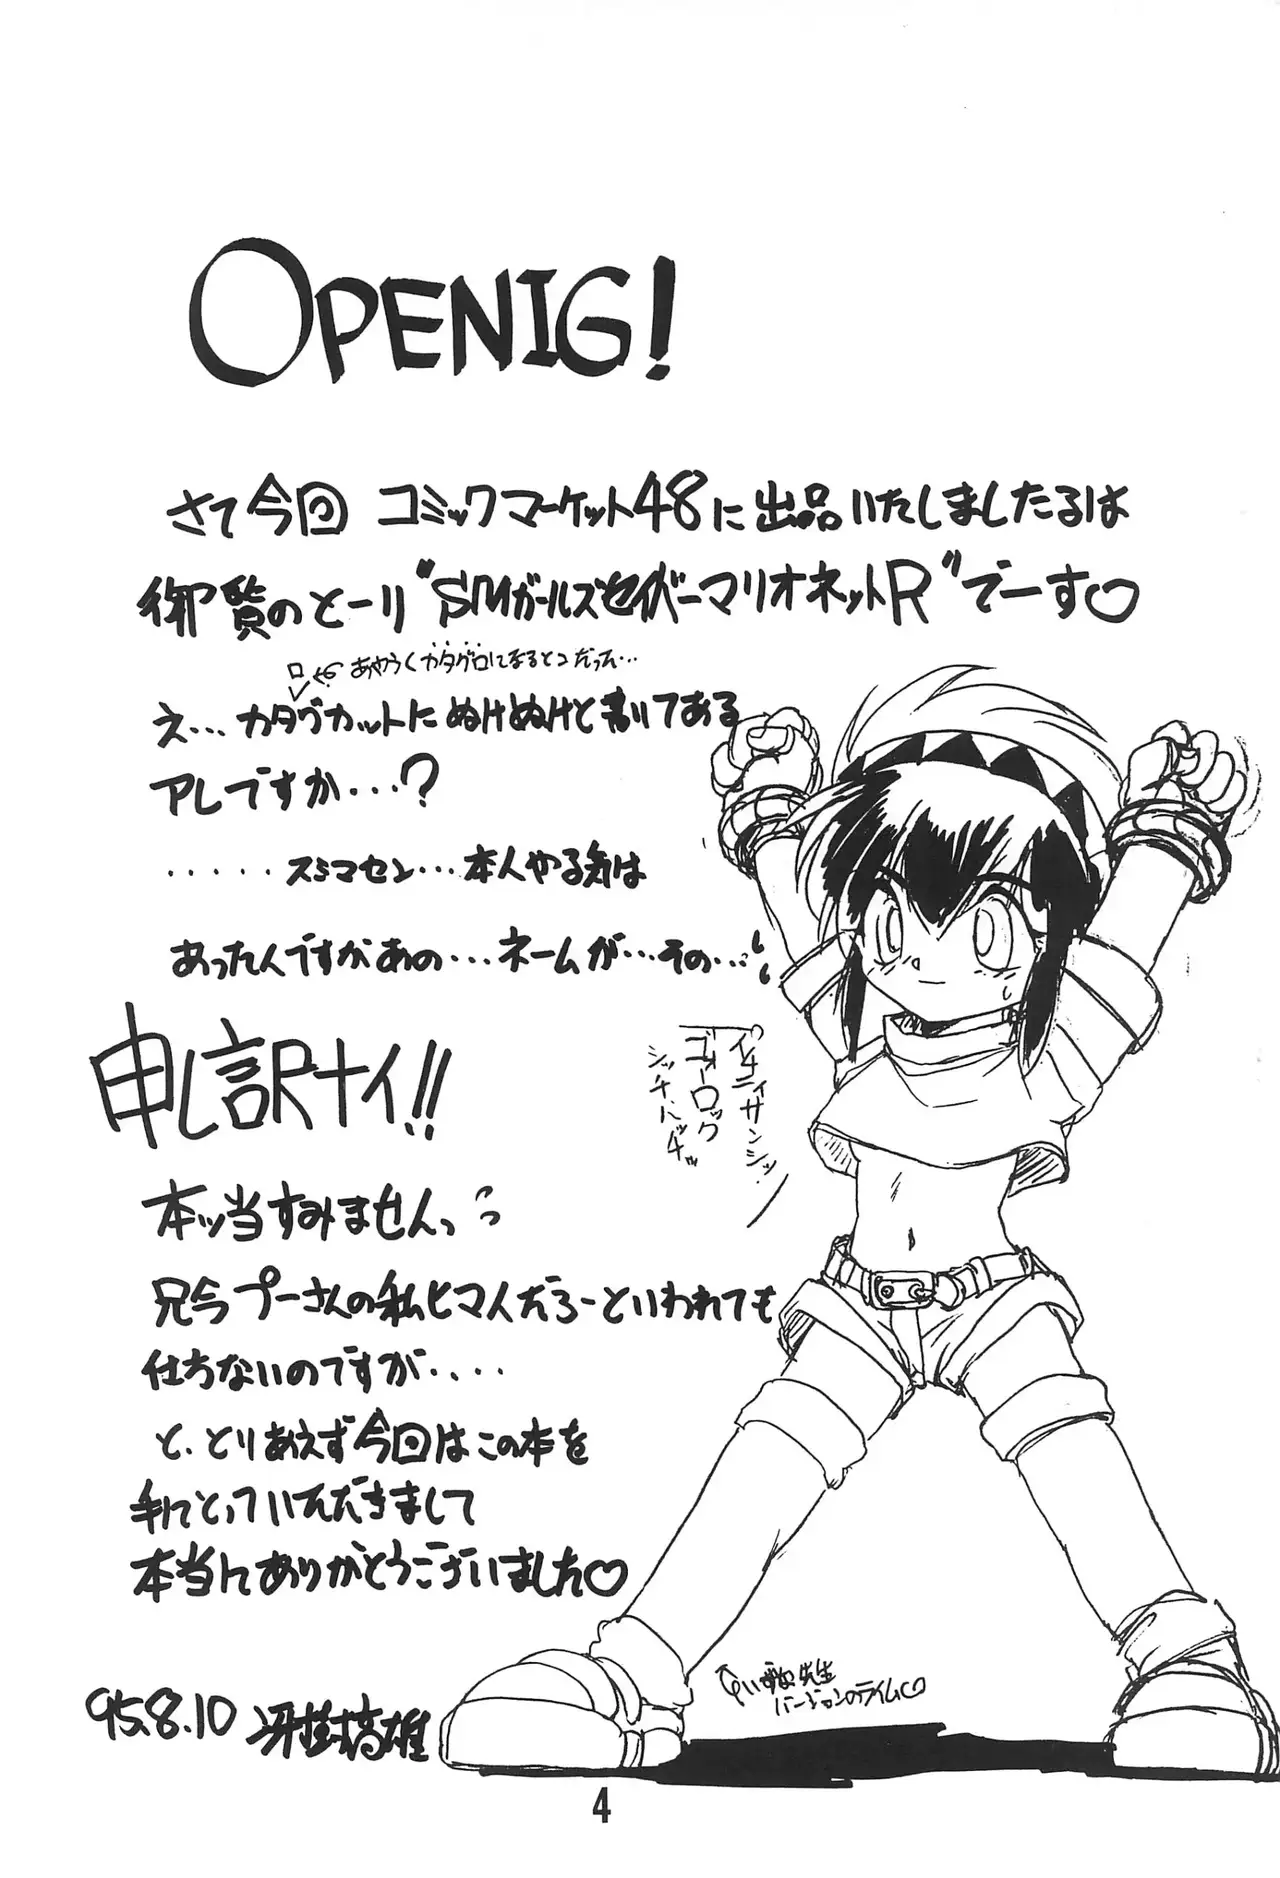 OPENIG!
さて今回 コミックマーケット48に出品いたしましたるは
御覧のとーり“SMガールズセイバーマリオネットR”でーす♡
ロ ←あやうくカタグロになるとこだった…
え…カタグカットにぬけぬけと書いてある
アレですか…?
.....スミマセン…本人やる気は
あったんですがあの…ネームが…その…
申し訳ナイ!!
本ッ当すみませんっ
兄今プーさんの私ヒマ人だろーといわれても
仕ちないのですが....
と、とりあえず今回はこの本を
手にとっていただきまして
本当にありがとうございました♡
イチニィサンシッ
ゴーロック
シッチハッチッ
いずぬ先生
バージョンのライム♡
95.8.10 冴樹高雄
4